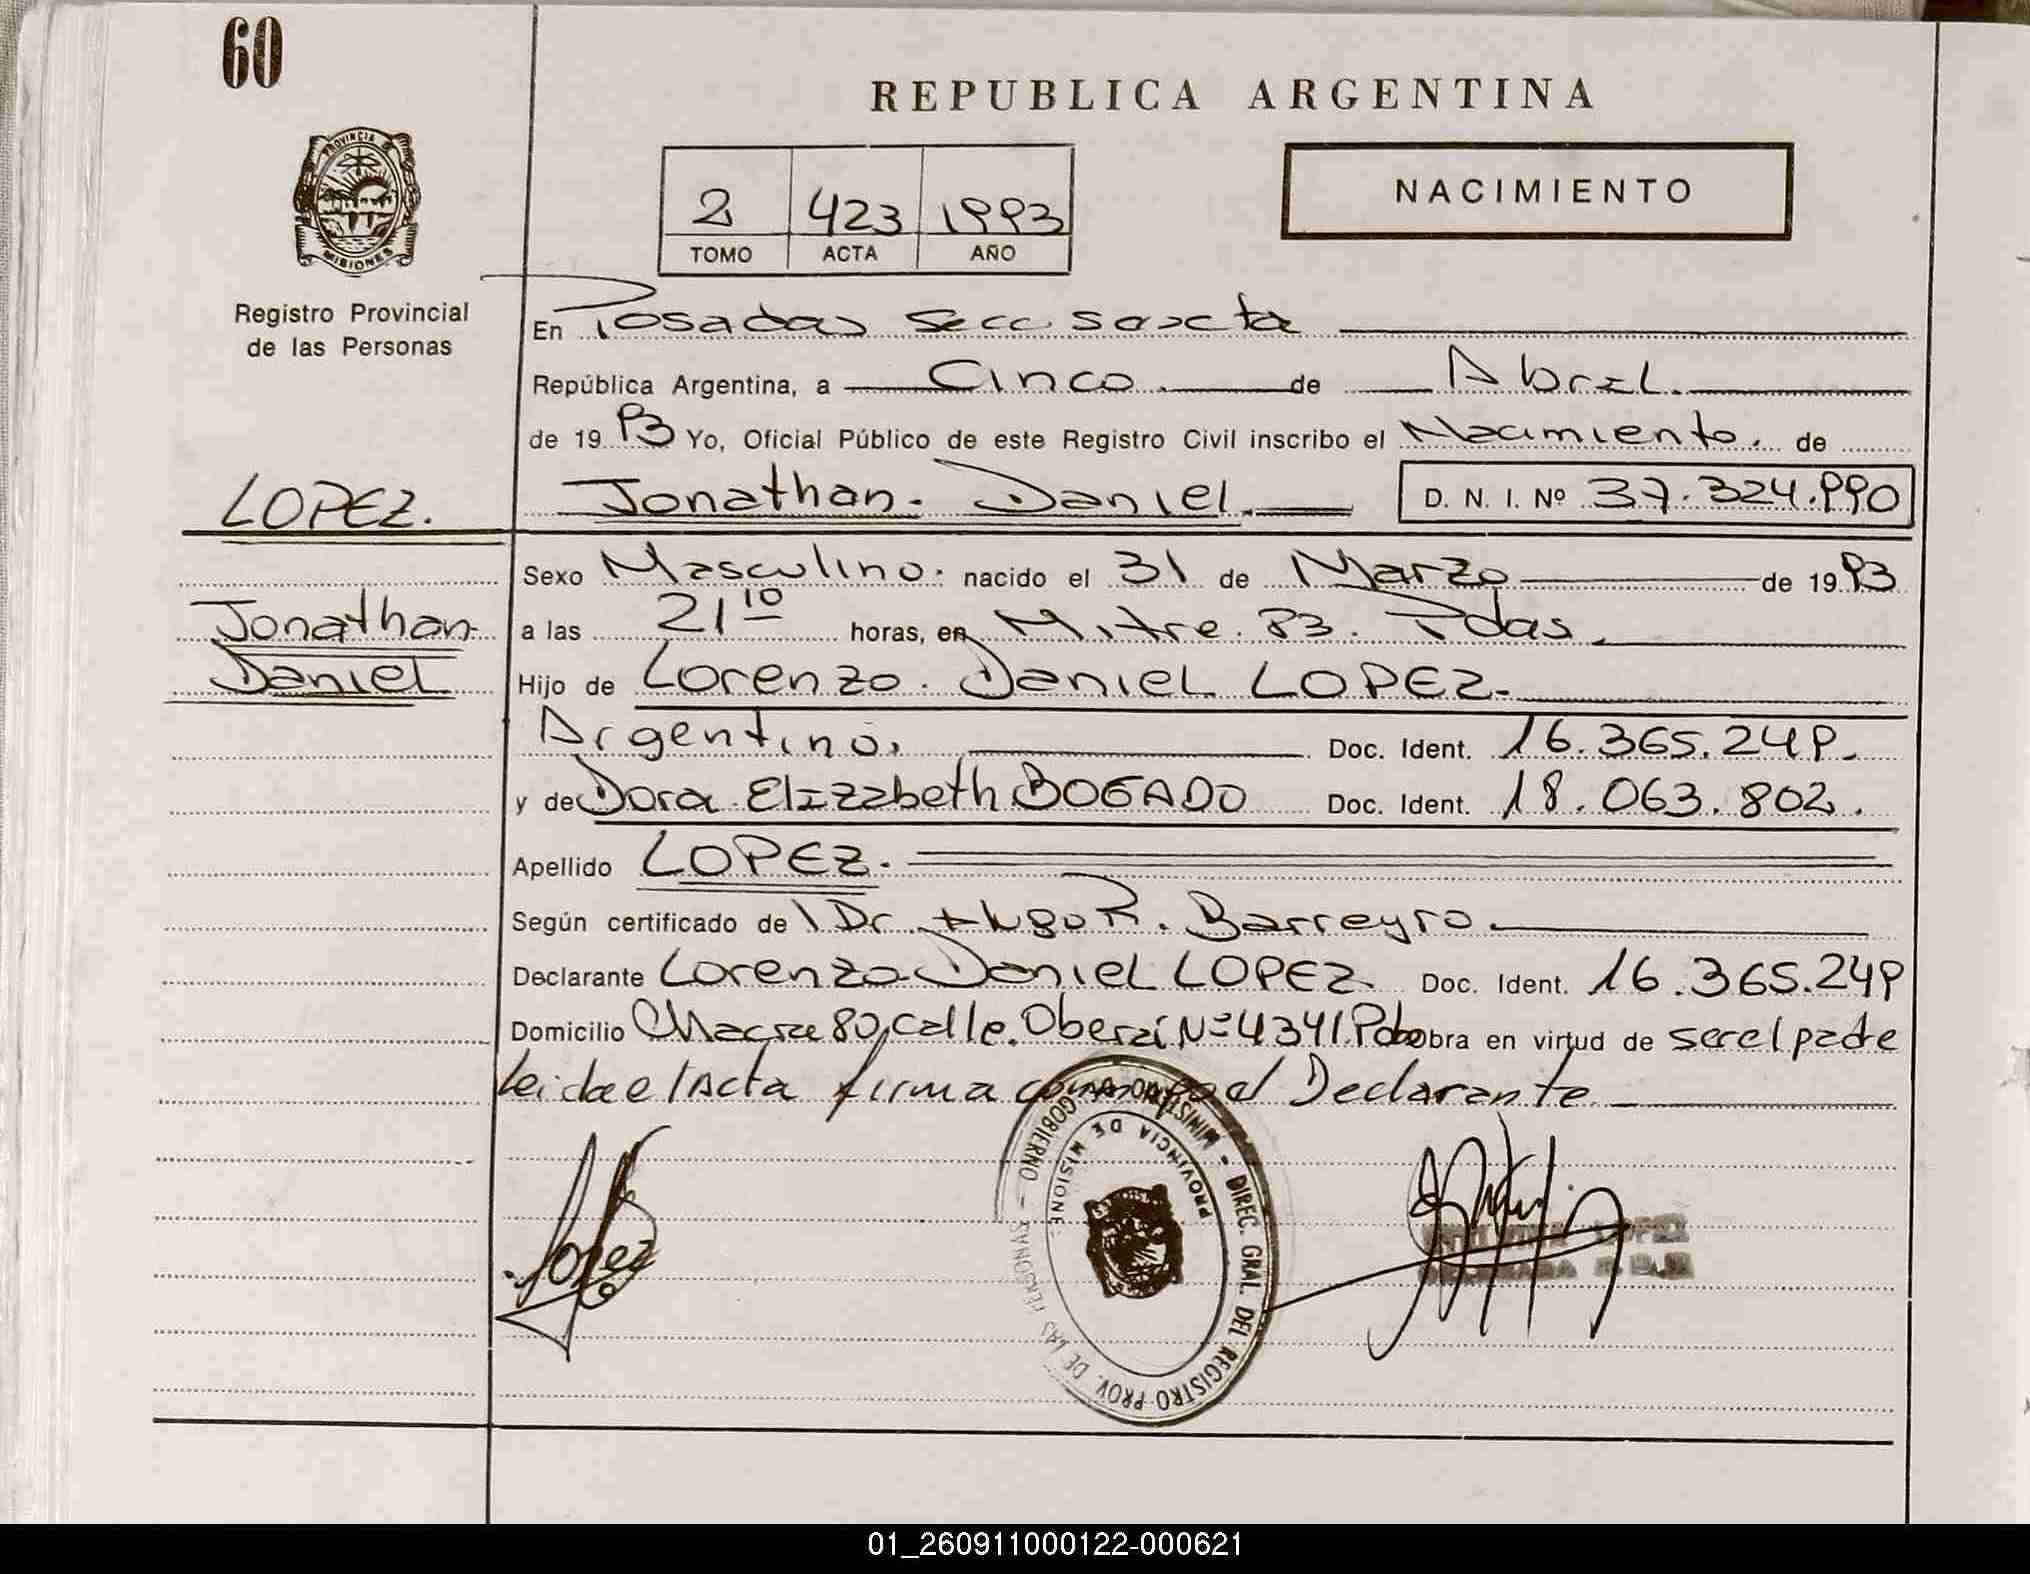 60
REPUBLICA ARGENTINA
PROVINCIA D MISIONES
NACIMIENTO
2 423 1993
TOMO ACTA AÑO
Registro Provincial
de las Personas
En Posadas Secc. sexta
República Argentina, a Cinco. de Abril.
de 1993 Yo, Oficial Público de este Registro Civil inscribo el Nacimiento. de
LOPEZ.
Jonathan. Daniel. D. N. I. Nº 37.324.990
Sexo Masculino. nacido el 31 de Marzo de 1993
Jonathan
a las 21 10 horas, en Mitre. 83. Pdas.
Daniel
Hijo de Lorenzo. Daniel LOPEZ.
Argentino. Doc. Ident. 16.365.249.
y de Dora Elizabeth BOGADO Doc. Ident. 18.063.802.
Apellido LOPEZ.
Según certificado de l Dr. Hugo R. Barreyro.
Declarante Lorenzo Daniel LOPEZ. Doc. Ident. 16.365.249
Domicilio Chacra 80, calle. Oberá Nº 4341 Pdas obra en virtud de ser el padre
Leida el Acta firma conmigo el Declarante
Lopez
MINISTERIO DE GOBIERNO - DIREC. GRAL. DEL REGISTRO PROV. DE LAS PERSONAS
PROVINCIA DE MISIONES
LOPEZ
01_260911000122-000621